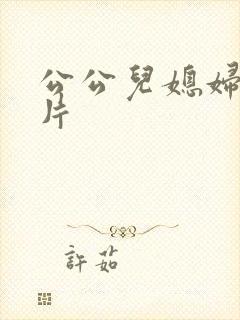 公公兒媳婦
片
許茹